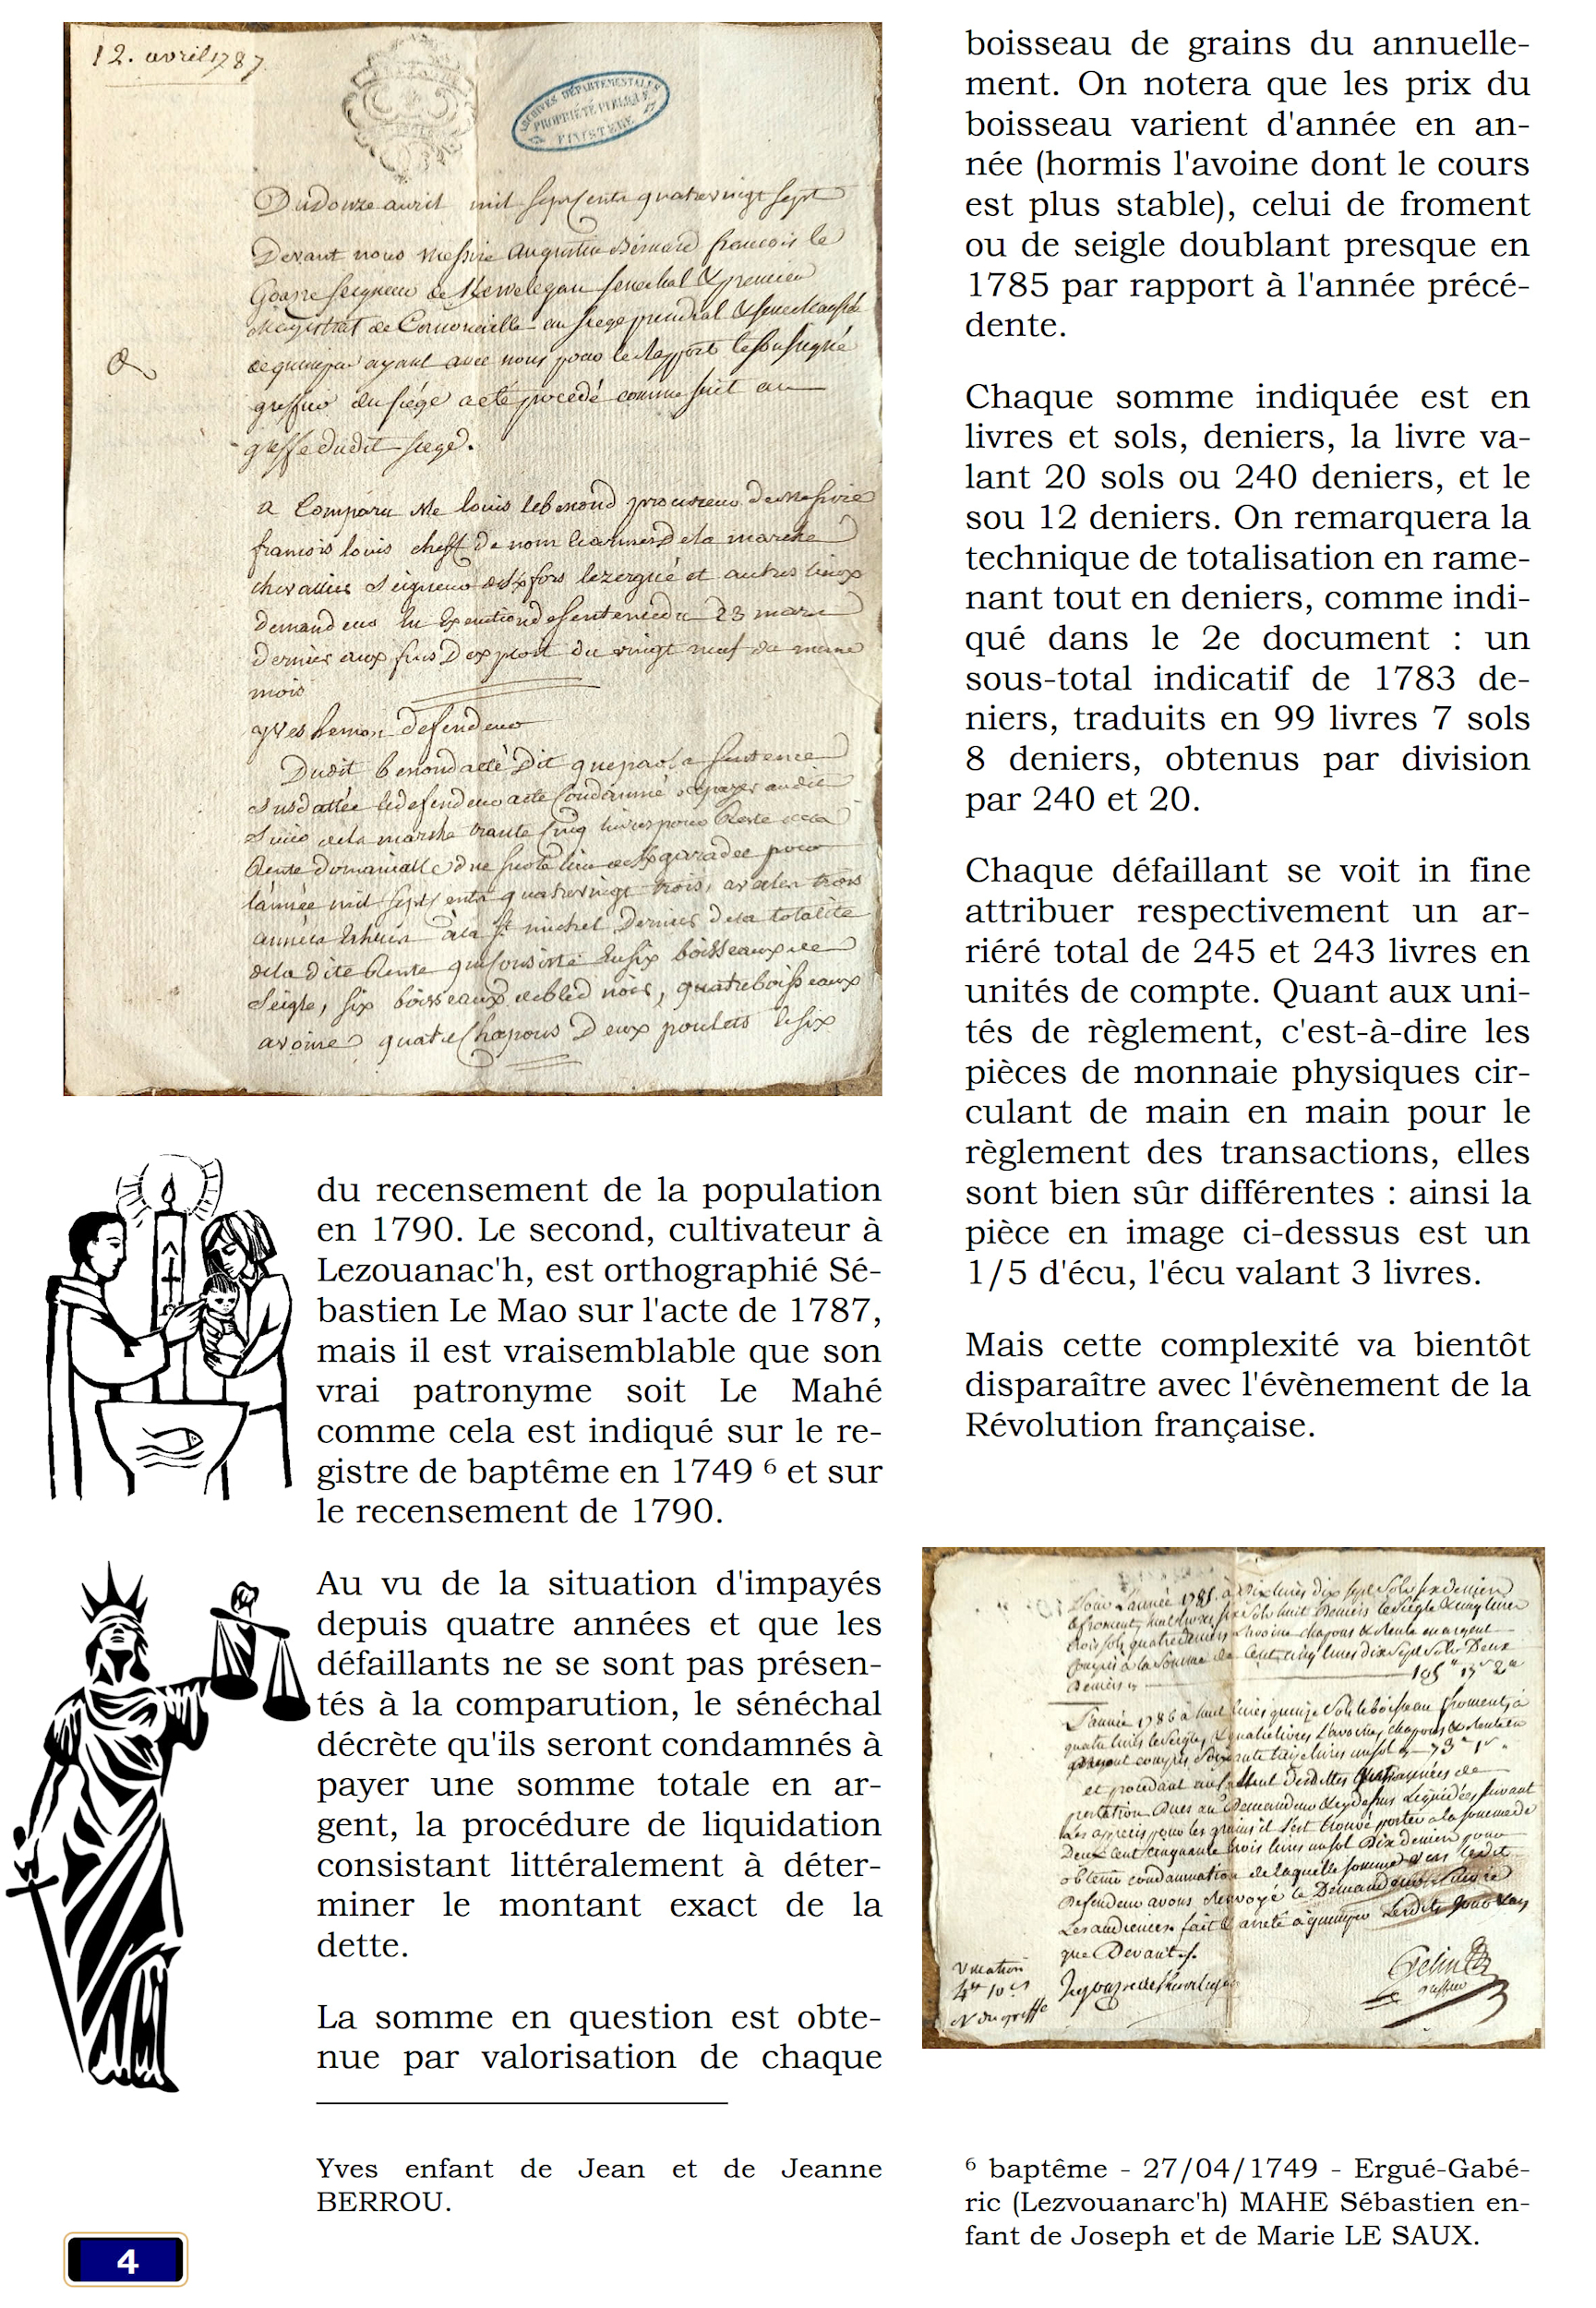 12. avril 1787
ARCHIVES DÉPARTEMENTALES
PROPRIÉTÉ PUBLIQUE
FINISTÈRE
Du Douze avril mil sept cents quatrevingt sept
Devant nous Messire Augustin Bernard francois le
Goazre seigneur de Kervelegan senechal & premier
Magistrat de Cornouaille au siege presidial &
de quimper ayant avec nous pour le Rapport le soussigné
greffier du siége a eté procedé comme suit au
greffe dudit siege.
a Comparu Me louis lebenond procureur de Messire
francois louis cheff de nom & armes De la marche
chevallier Seigneur de lezergué et autres lieux
demandeur En Execution de sentence du 23 mars
dernier aux fins D'exploit du vingt neuf du meme
mois
yves hemon defendeur
Dudit benond a eté Dit que par la sentence
Susdattée le defendeur a eté Condamné de payer audit
Sieur de la marche trante cinq livres pour Reste de la
Rente Domanialle due sur le lieu de pour
l'année mil sept cents quatrevingt trois, avec les trois
années Echues à la St michel Dernier de la totalité
de la dite Rente qui consiste En six boisseaux de
Seigle, six boisseaux de bled noir, quatre boisseaux
avoine quatre Chapons Deux poulets & six
du recensement de la population
en 1790. Le second, cultivateur à
Lezouanac'h, est orthographié Sé-
bastien Le Mao sur l'acte de 1787,
mais il est vraisemblable que son
vrai patronyme soit Le Mahé
comme cela est indiqué sur le re-
gistre de baptême en 1749 ⁶ et sur
le recensement de 1790.
Au vu de la situation d'impayés
depuis quatre années et que les
défaillants ne se sont pas présen-
tés à la comparution, le sénéchal
décrète qu'ils seront condamnés à
payer une somme totale en ar-
gent, la procédure de liquidation
consistant littéralement à déter-
miner le montant exact de la
dette.
La somme en question est obte-
nue par valorisation de chaque
Yves enfant de Jean et de Jeanne
BERROU.
4
boisseau de grains du annuelle-
ment. On notera que les prix du
boisseau varient d'année en an-
née (hormis l'avoine dont le cours
est plus stable), celui de froment
ou de seigle doublant presque en
1785 par rapport à l'année précé-
dente.
Chaque somme indiquée est en
livres et sols, deniers, la livre va-
lant 20 sols ou 240 deniers, et le
sou 12 deniers. On remarquera la
technique de totalisation en rame-
nant tout en deniers, comme indi-
qué dans le 2e document : un
sous-total indicatif de 1783 de-
niers, traduits en 99 livres 7 sols
8 deniers, obtenus par division
par 240 et 20.
Chaque défaillant se voit in fine
attribuer respectivement un ar-
riéré total de 245 et 243 livres en
unités de compte. Quant aux uni-
tés de règlement, c'est-à-dire les
pièces de monnaie physiques cir-
culant de main en main pour le
règlement des transactions, elles
sont bien sûr différentes : ainsi la
pièce en image ci-dessus est un
1/5 d'écu, l'écu valant 3 livres.
Mais cette complexité va bientôt
disparaître avec l'évènement de la
Révolution française.
Pour L'année 1785 à Dix livres dix sept Sols six deniers
le froment, huit livres six Sols huit Deniers le Seigle & cinq livres
trois sols quatre deniers L'avoine chapons & Rente en argent
compris à la Somme de Cent cinq livres dix sept Sols Deux
Deniers
L'année 1786 à huit livres quinze Sols le boisseau froment, à
quatre livres le Seigle, & quatre livres L'avoine, chapons & Rente en
argent compris Soixante treize livres un sol 73
et procedant au Desdittes quatre années de
prestation Dues au Demandeur & cy dessus Liquidées suivant
Les apprecis pour les grains il s'est trouvé porter a la somme de
Deux Cent cinquante trois livres un sol Dix deniers pour
obtenir condamnation de laquelle somme vers ledit
Defendeur avons Renvoyé le Demandeur
Les audiences. fait & arreté à quimper Lesdits Jour & an
que Devant.
Vacation
du greffe
Gelin
greffier
⁶ baptême - 27/04/1749 - Ergué-Gabé-
ric (Lezvouanarc'h) MAHE Sébastien en-
fant de Joseph et de Marie LE SAUX.